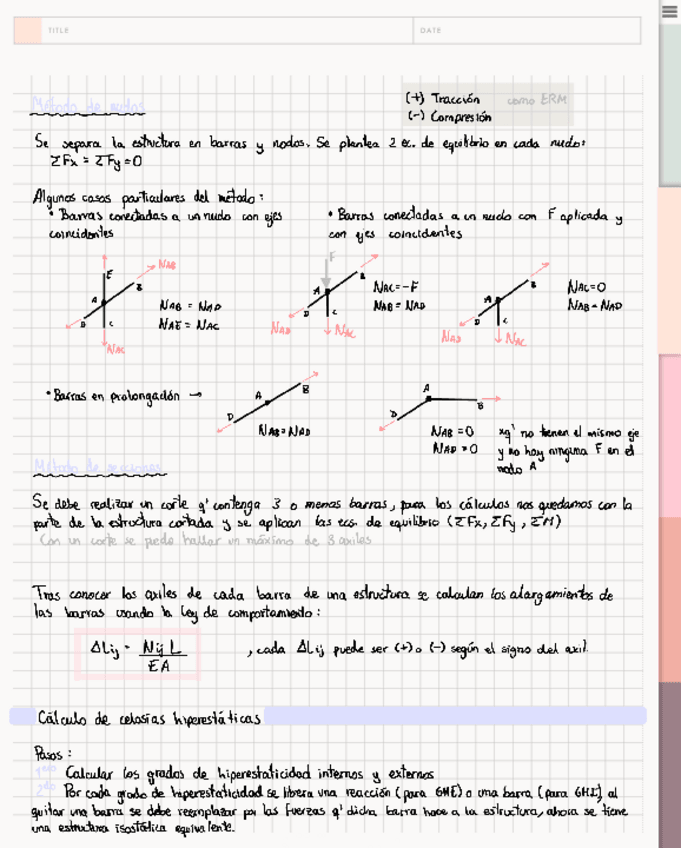 TITLE
DATE
Método de nudos
(+) Tracción como ERM
(-) Compresión
Se separa la estructura en barras y nodos. Se plantea 2 ec. de equilibrio en cada nudo:
ΣFx = ΣFy = 0
Algunos casos particulares del método:
• Barras conectadas a un nudo con ejes
coincidentes
• Barras conectadas a un nudo con F aplicada y
con ejes coincidentes
NAB
E
B
A
D
C
NAC
NAB = NAD
NAE = NAC
F
A
B
D
C
NAD
NAC
NAC = -F
NAB = NAD
A
B
D
C
NAD
NAC
NAC = 0
NAB = NAD
• Barras en prolongación →
A
B
D
NAB = NAD
A
B
D
NAB = 0
NAD = 0
xq' no tienen el mismo eje
y no hay ninguna F en el
nodo A
Método de secciones
Se debe realizar un corte q' contenga 3 o menos barras, para los cálculos nos quedamos con la
parte de la estructura cortada y se aplican las ecs. de equilibrio (ΣFx, ΣFy, ΣM)
Con un corte se puede hallar un máximo de 3 axiles
Tras conocer los axiles de cada barra de una estructura se calculan los alargamientos de
las barras usando la ley de comportamiento:
ΔLij = Nij L / EA , cada ΔLij puede ser (+) o (-) según el signo del axil.
Cálculo de celosías hiperestáticas
Pasos:
Calcular los grados de hiperestaticidad internos y externos
2do Por cada grado de hiperestaticidad se libera una reacción (para GHE) o una barra (para GHI), al
quitar una barra se debe reemplazar por las fuerzas q' dicha barra hace a la estructura, ahora se tiene
una estructura isostática equivalente.